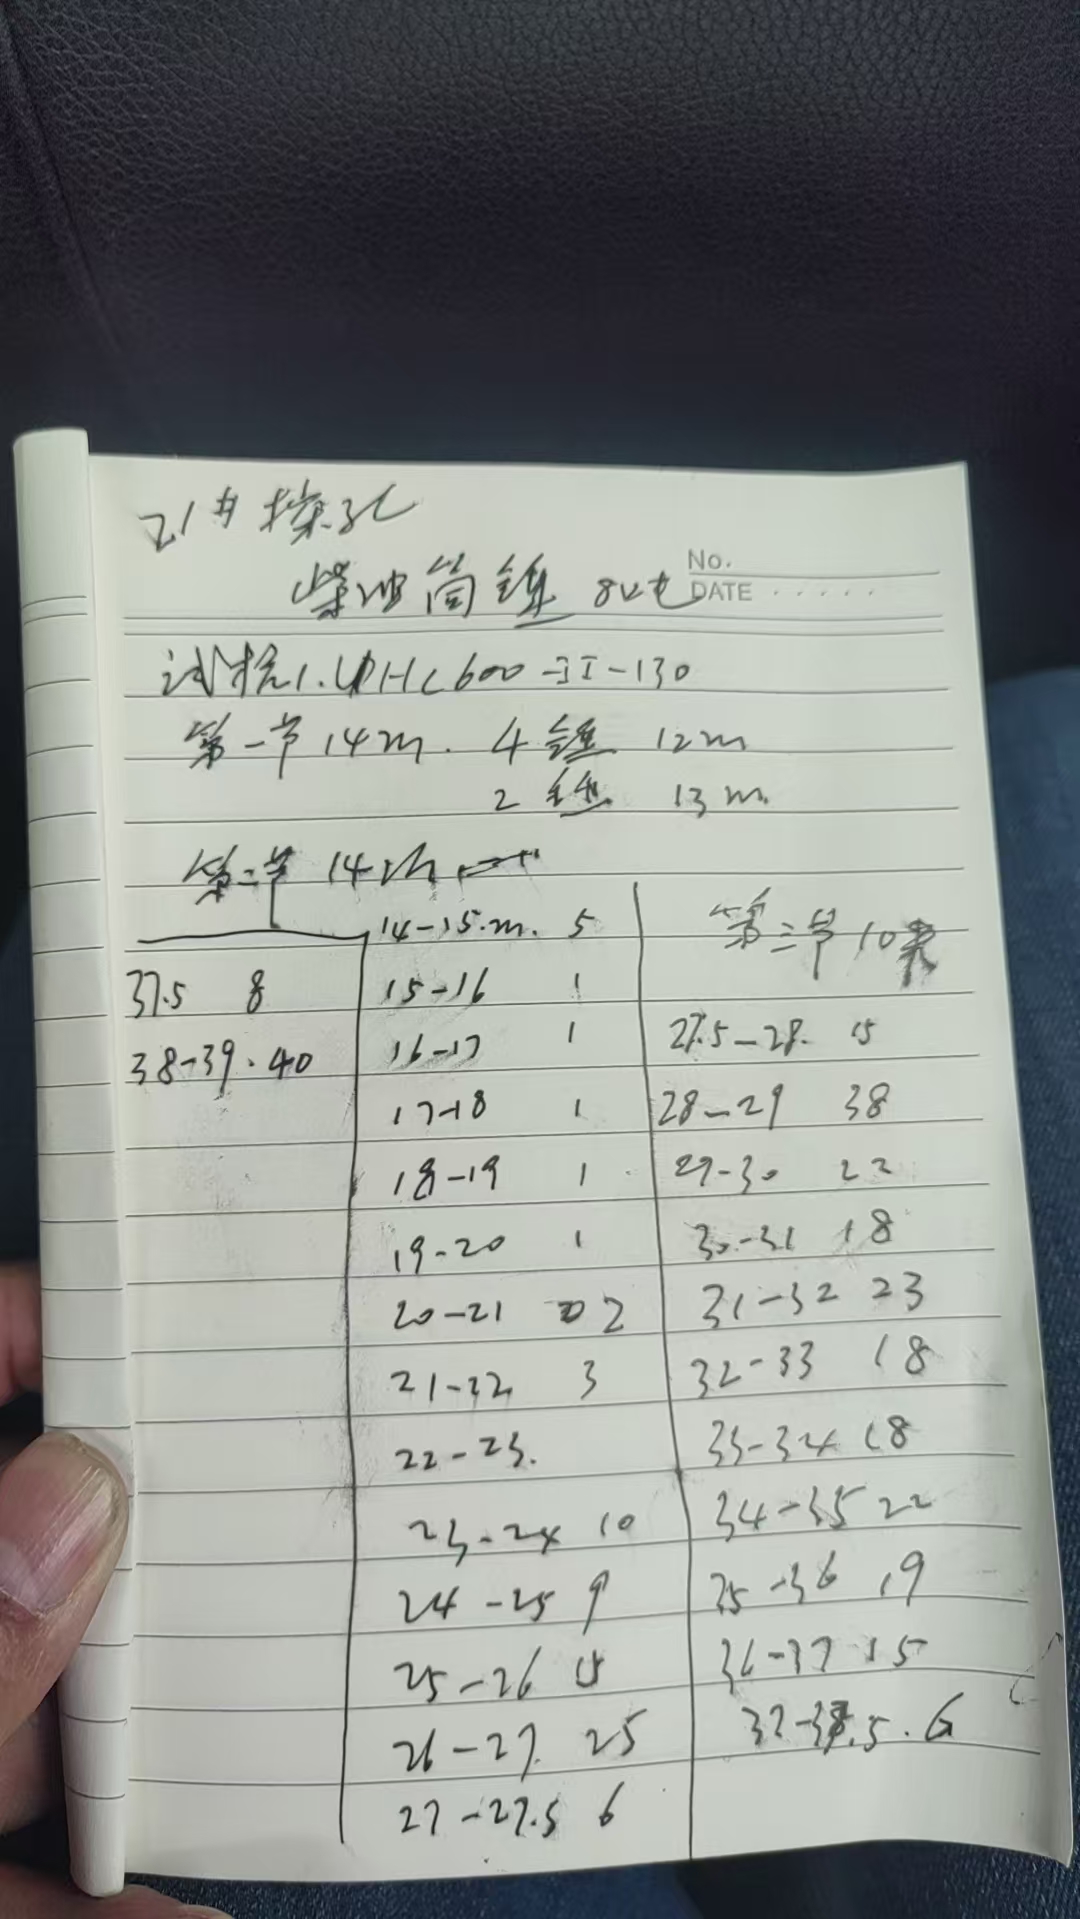 21# 探孔
柴油筒锤 8
No.
DATE
试桩1. UHC600-II-130
第一节 14m. 4锤 12m
2锤 13m
第二节 14m
14-15.m. 5
15-16 1
16-17 1
17-18 1
18-19 1
19-20 1
20-21 2
21-22 3
22-23.
23-24 10
24-25 9
25-26
26-27. 25
27-27.5 6
第三节 10米
27.5-28. 15
28-29 38
29-30 22
30-31 18
31-32 23
32-33 18
33-34 18
34-35 22
35-36 19
36-37 15
37-37.5. 6
37.5 8
38-39. 40